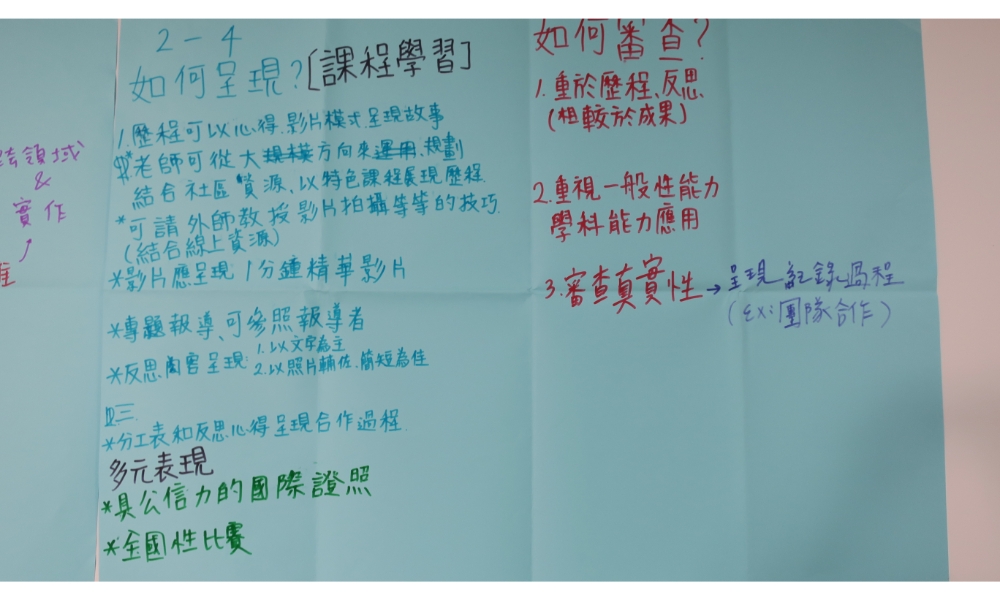 2-4
如何呈現?[課程學習]
1.歷程可以心得、影片模式呈現故事
*老師可從大規模方向來運用、規劃
結合社區資源、以特色課程展現歷程
*可請外師教授影片拍攝等等的技巧
(結合線上資源)
*影片應呈現1分鐘精華影片
*專題報導、可參照報導者
*反思內容呈現:1.以文字為主
2.以照片輔佐、簡短為佳
三.
*分工表和反思心得呈現合作過程
多元表現
*具公信力的國際證照
*全國性比賽
如何審查?
1.重於歷程、反思
(相較於成果)
2.重視一般性能力
學科能力應用
3.審查真實性→呈現記錄過程
(ex:團隊合作)
跨領域
&
實作